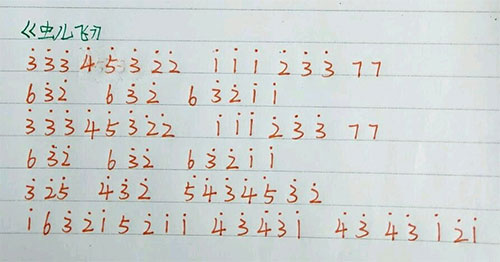 《虫儿飞》
3̇3̇3̇ 4̇ 5̇ 3̇ 2̇2̇ 1̇ 1̇ 1̇ 2̇ 3̇ 3̇ 7 7
6 3̇2̇ 6 3̇ 2̇ 6 3̇ 2̇ 1̇ 1̇
3̇ 3̇ 3̇ 4̇ 5̇ 3̇ 2̇2̇ 1̇ 1̇1̇ 2̇ 3̇ 3̇ 7 7
6 3̇2̇ 6 3̇ 2̇ 6 3̇ 2̇ 1̇ 1̇
3̇ 2̇5̇ 4̇ 3̇ 2̇ 5̇ 4̇ 3̇ 4̇ 5̇ 3̇ 2̇
1̇ 6 3̇ 2̇ 1̇ 5 2̇ 1̇ 1̇ 4̇ 3̇ 4̇3̇ 1̇ 4̇ 3̇ 4̇ 3̇ 1̇ 2̇1̇